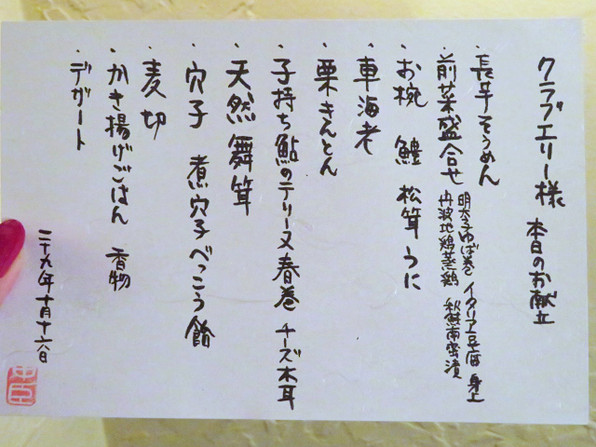 クラブエリー様 本日のお献立
・長芋そうめん
・前菜盛合せ 明太子ゆば巻 イタリア豆腐 身上
丹波地鶏蒸鶏 秋鮭南蛮漬
・お椀 鱧 松茸 うに
・車海老
・栗きんとん
・子持ち鮎のテリーヌ春巻 チーズ 木耳
・天然舞茸
・穴子 煮穴子べっこう餡
・麦切
・かき揚げごはん 香物
・デザート
二十九年十月十六日